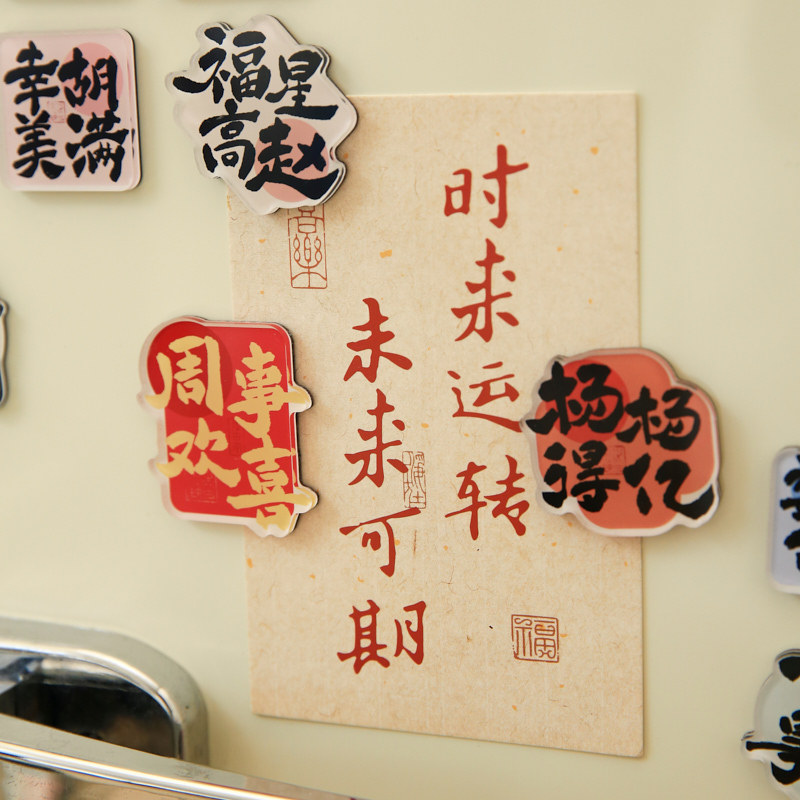 幸胡
美满
福星
高赵
时来运转
未来可期
周事
欢喜
杨杨
得亿
樂
福